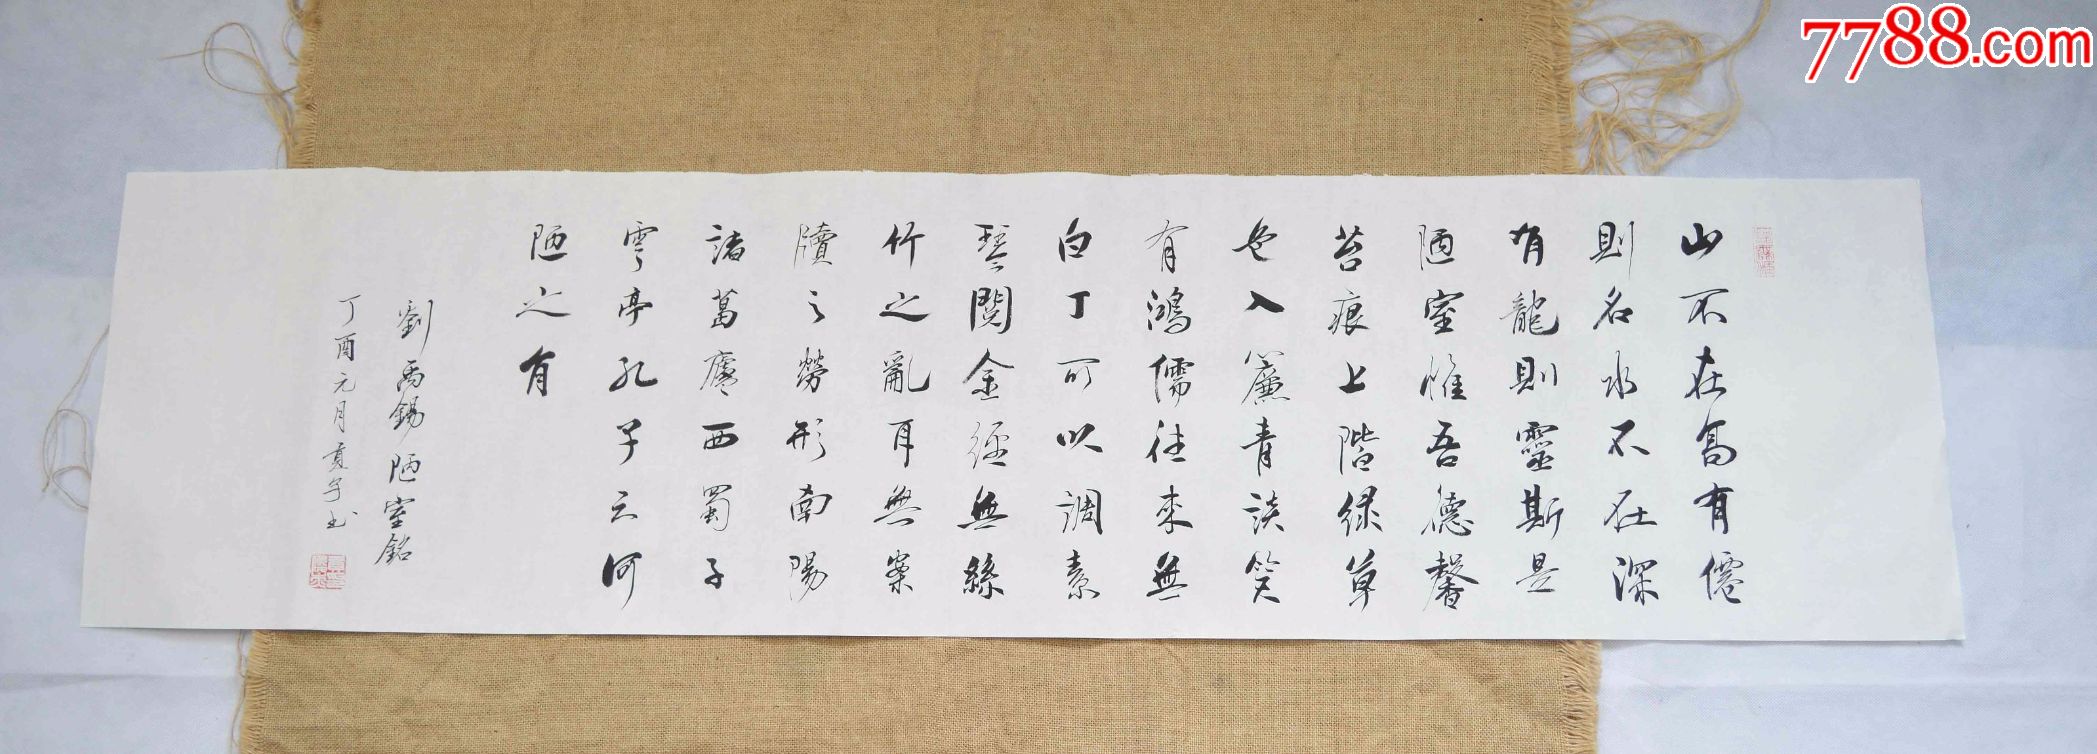 山不在高有僊
則名水不在深
有龍則靈斯是
陋室惟吾德馨
苔痕上階緑草
色入簾青談笑
有鴻儒往來無
白丁可以調素
琴閱金經無絲
竹之亂耳無案
牘之勞形南陽
諸葛廬西蜀子
雲亭孔子云何
陋之有
劉禹錫陋室銘
丁酉元月
7788.com